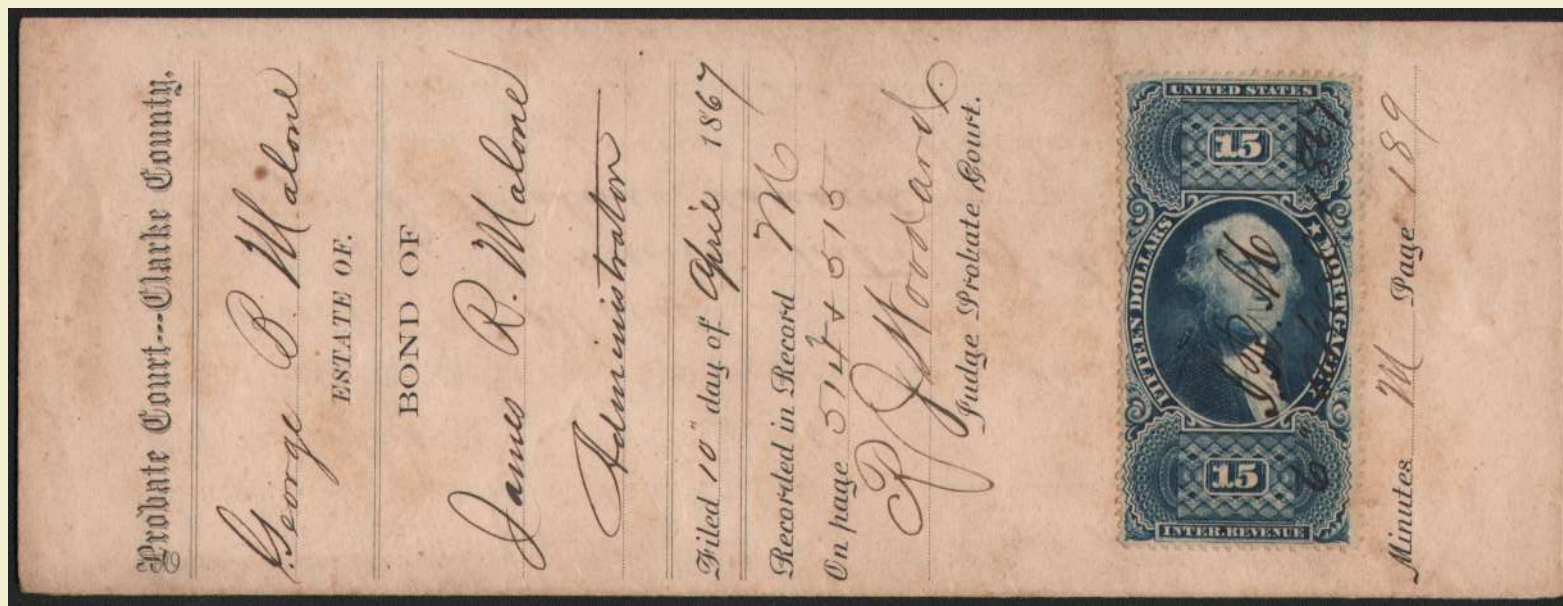 Probate Court---Clarke County.
George B. Malone
ESTATE OF.
BOND OF
James R. Malone
Administrator
Filed 10" day of April 1867
Recorded in Record M
On page 514 & 515
Woodard
Judge Probate Court.
UNITED STATES
15
FIFTEEN DOLLARS ★ MORTGAGE
15
INTER. REVENUE
J.R.M.
1867
Minutes M Page 189